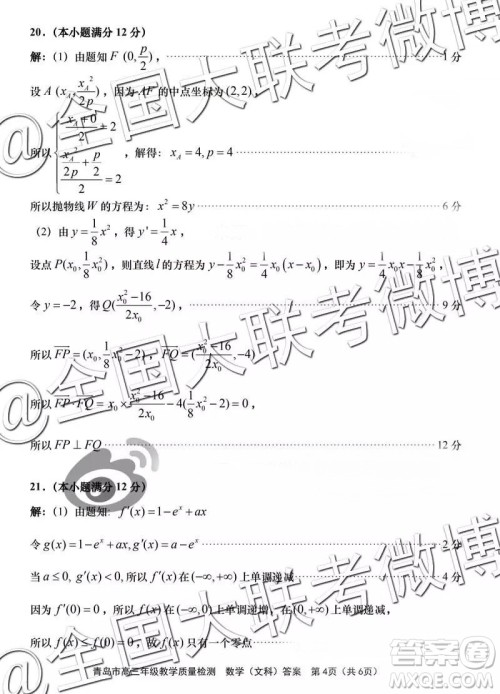 20.（本小题满分 12 分）
解:（1）由题知 F (0, p/2)， 1 分
设 A (x_A, x_A²/2p)，因为 AF 的中点坐标为 (2,2)，
所以 { (x_A+0)/2 = 2
(x_A²/2p + p/2)/2 = 2 ，解得: x_A = 4, p = 4
所以抛物线 W 的方程为: x² = 8y 6 分
（2）由 y = 1/8 x²，得 y' = 1/4 x，
设点 P(x₀, 1/8 x₀²)，则直线 l 的方程为 y − 1/8 x₀² = 1/4 x₀(x − x₀)，即为 y = 1/4
令 y = −2，得 Q((x₀²−16)/2x₀, −2)， 9 分
所以 FP = (x₀, 1/8 x₀² −2)，FQ = ((x₀²−16)/2x₀, −4)
所以 FP·FQ = x₀ × (x₀²−16)/2x₀ − 4(1/8 x₀² − 2) = 0，
所以 FP ⊥ FQ 12 分
21.（本小题满分 12 分）
解:（1）由题知: f'(x) = 1 − eˣ + ax
令 g(x) = 1 − eˣ + ax, g'(x) = a − eˣ 2 分
当 a ≤ 0, g'(x) < 0, 所以 f'(x) 在 (−∞,+∞) 上单调递减 4 分
因为 f'(0) = 0，所以 f(x) 在 (−∞,0) 上单调递增，在 (0,+∞) 上单调递减
所以 f(x) ≤ f(0) = 0，故 f(x) 只有一个零点
青岛市高三年级教学质量检测 数学（文科）答案 第 4页（共 6页）
@全国大联考微博
@全国大联考微博